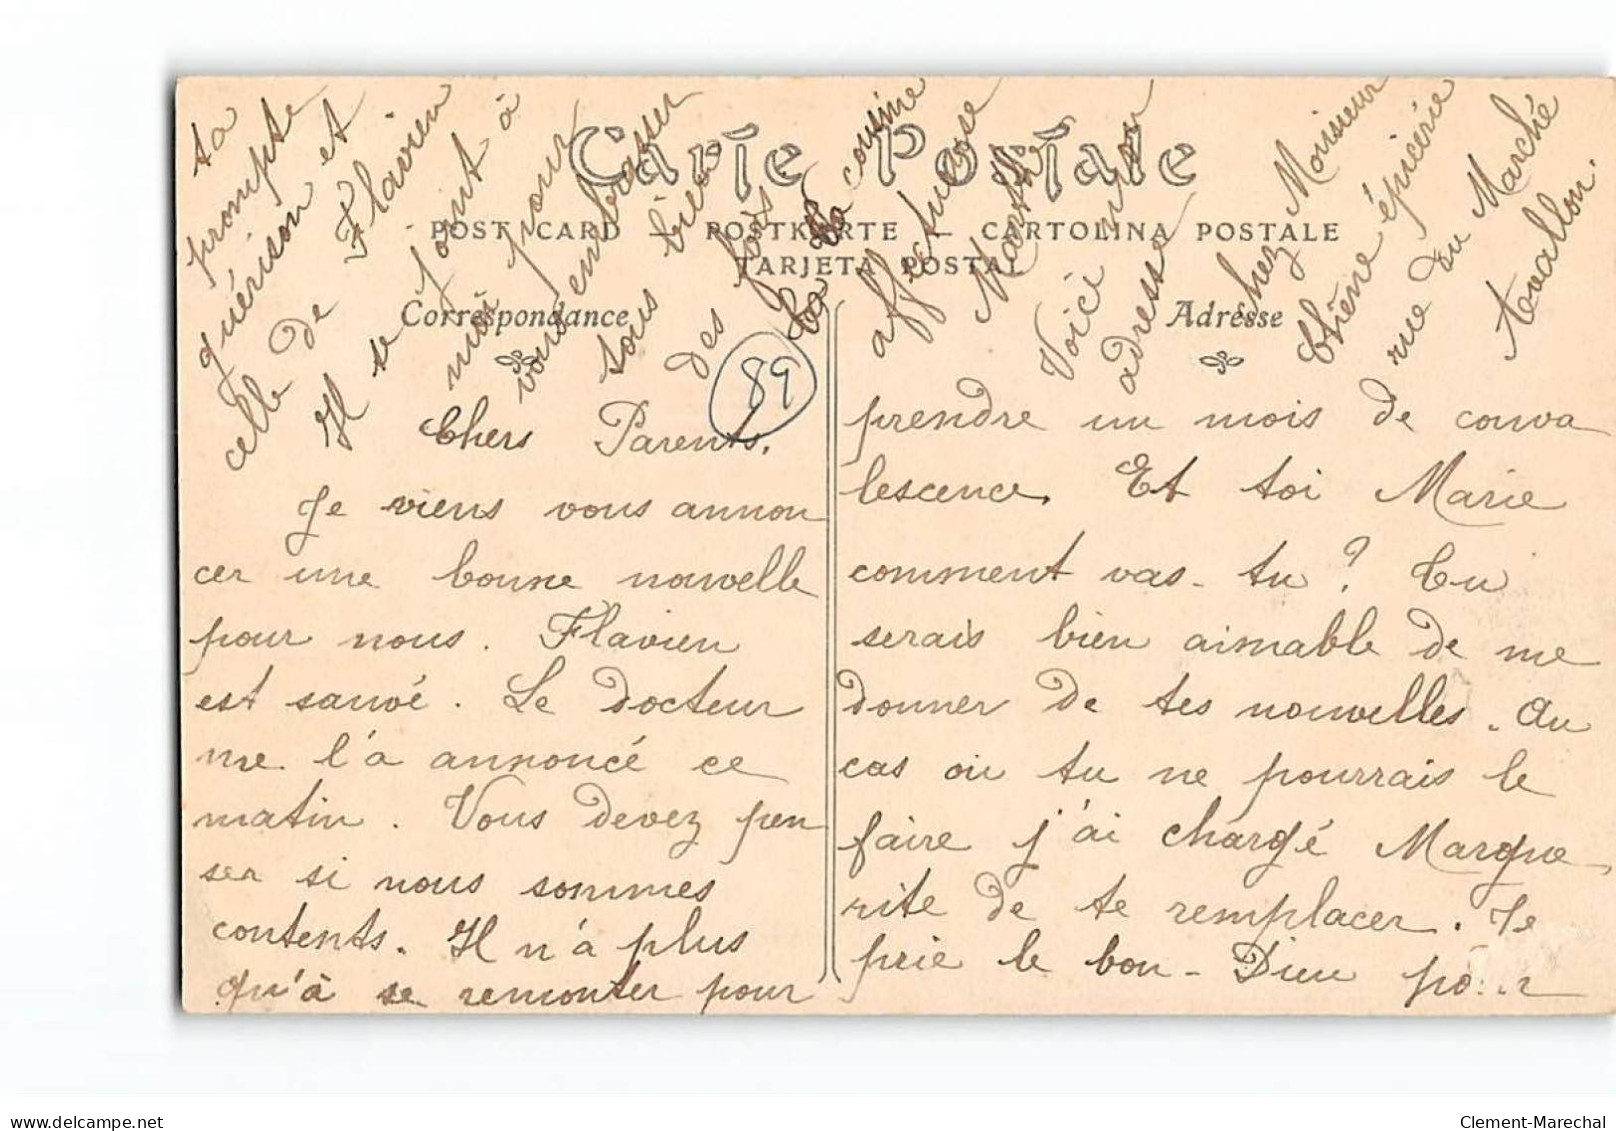 Carte Postale
POST CARD — POSTKARTE — CARTOLINA POSTALE
TARJETA POSTAL
Correspondance
Adresse
89
Chers Parents.
Je viens vous annon
cer une bonne nouvelle
pour nous. Flavien
est sauvé. Le docteur
me l'a annoncé ce
matin. Vous devez pen
ser si nous sommes
contents. Il n'a plus
qu'à se remonter pour
prendre un mois de conva
lescence. Et toi Marie
comment vas-tu? Tu
serais bien aimable de me
donner de tes nouvelles. Au
cas où tu ne pourrais le
faire j'ai chargé Margue
rite de te remplacer. Je
prie le bon-Dieu pour
ta
prompte
guérison et
celle de Flavien
Il se joint à
moi pour
vous embrasser
tous bien
des fois
Ta cousine
affectueuse
Marthe
Voici mon
adresse
chez Monsieur
Etiène épicérie
rue du Marché
Avallon.
delcampe.net
Clement-Marechal